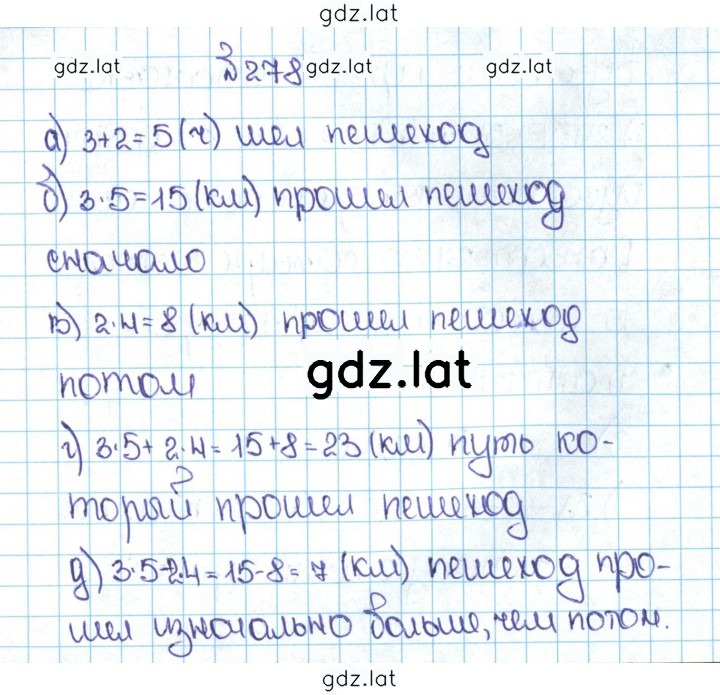 gdz.lat
№278
gdz.lat gdz.lat gdz.lat
а) 3+2=5(ч) шел пешеход
б) 3·5=15(км) прошел пешеход
сначало
в) 2·4=8 (км) прошел пешеход
потом
gdz.lat
г) 3·5+2·4=15+8=23 (км) путь ко-
торый прошел пешеход
д) 3·5-2·4=15-8=7 (км) пешеход про-
шел изначально больше, чем потом.
gdz.lat